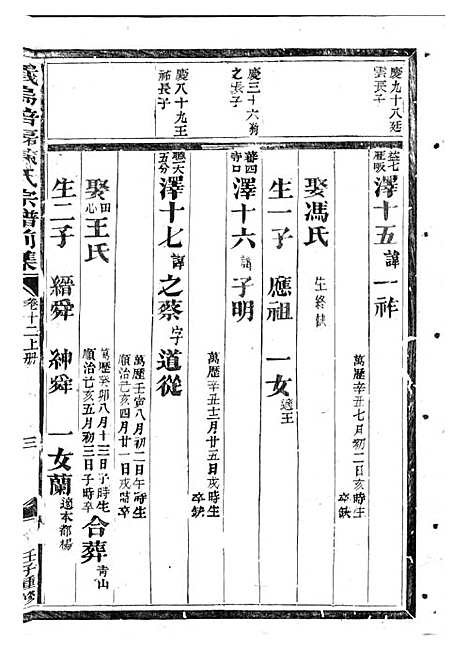 慶九十八廷
雲長子
益七
澤十五諱一祚
萬歷辛丑七月初二日亥時生
卒缺
娶馮氏
生終缺
生一子 應祖 一女適王
慶三十六
之長子
澤十六諱子明
萬歷辛丑十二月廿五日亥時生
卒缺
慶八十九王
祐長子
五分
澤十七諱之蔡字道從
萬歷壬寅八月初二日午時生
順治己亥四月廿一日戌時卒
娶田心王氏
萬歷癸卯八月十三日子時生
順治己亥五月初三日子時卒
合葬青山
生二子 縉舜 紳舜 一女蘭適本都楊
氏宗譜前集
卷十二上册
三
壬子重修